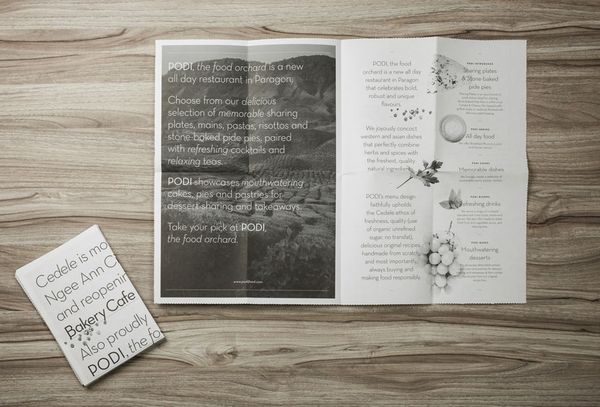 PODI, the food orchard is a new
all day restaurant in Paragon.
Choose from our delicious
selection of memorable sharing
plates, mains, pastas, risottos and
stone baked pide pies, paired
with refreshing cocktails and
relaxing teas.
PODI showcases mouthwatering
cakes, pies and pastries for
dessert sharing and takeaways.
Take your pick at PODI,
the food orchard.
PODI, the food
orchard is a new all day
restaurant in Paragon
that celebrates bold,
robust and unique
flavours.
We joyously concoct
western and asian dishes
that perfectly combine
herbs and spices with
the freshest, quality
natural ingredients.
PODI's menu design
faithfully upholds
the Cedele ethos of
freshness, quality (use
of organic unrefined
sugar, no transfat),
delicious original recipes,
handmade from scratch,
and most importantly,
always buying and
making food responsibly.
Sharing plates
& Stone baked
pide pies
All day food
Memorable dishes
Refreshing drinks
Mouthwatering
desserts
Cedele is mo
Ngee Ann C
and reopenin
Bakery Cafe
Also proudly
PODI, the fo